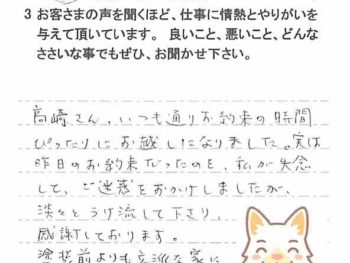 3 お客さまの声を聞くほど、仕事に情熱とやりがいを
与えて頂いています。 良いこと、悪いこと、どんな
ささいな事でもぜひ、お聞かせ下さい。
高崎さん、いつも通りお約束の時間
ぴったりにお越しになりました。実は
昨日のお約束だったのを、私が失念
して、ご迷惑をおかけしましたが、
淡々とうけ流して下さり、
感謝しております。
塗装前よりも立派な家に